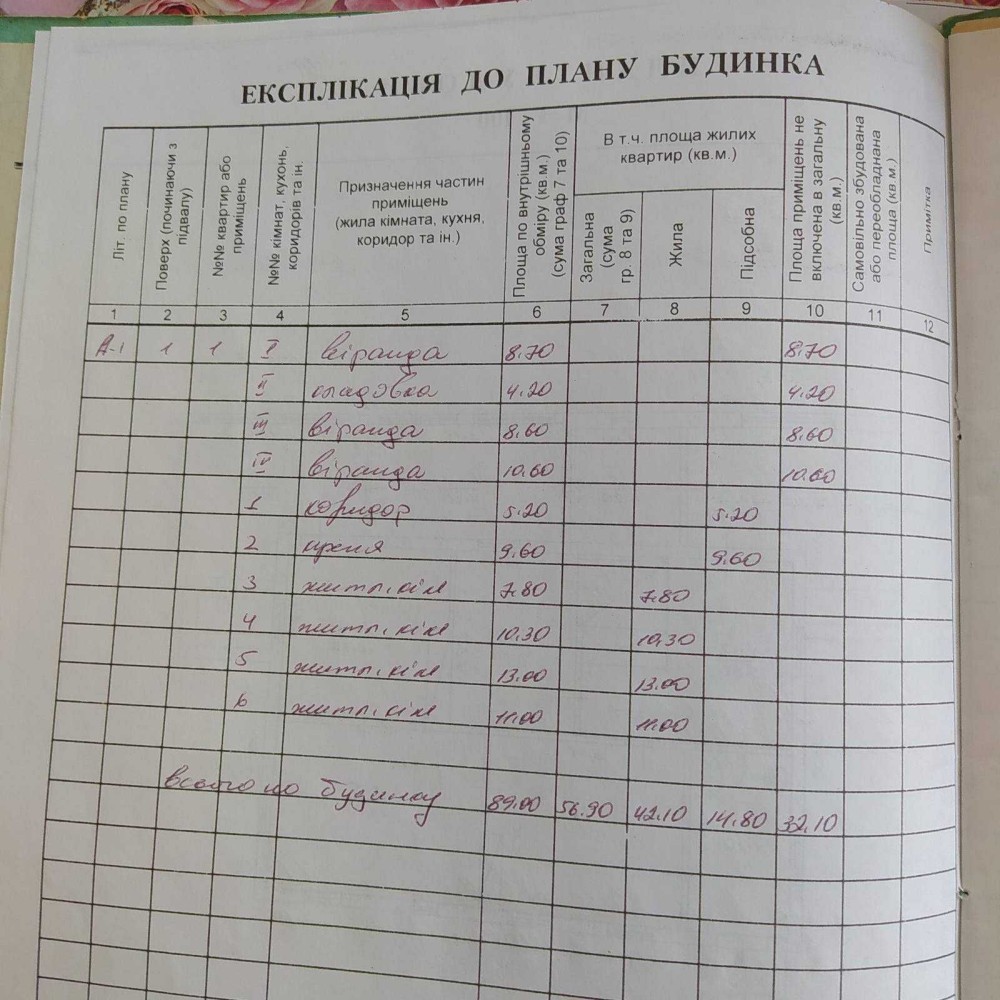 ЕКСПЛІКАЦІЯ ДО ПЛАНУ БУДИНКА
Літ. по плану
Поверх (починаючи з підвалу)
№№ квартир або приміщень
№№ кімнат, кухонь, коридорів та ін.
Призначення частин
приміщень
(жила кімната, кухня,
коридор та ін.)
Площа по внутрішньому обміру (кв.м.) (сума граф 7 та 10)
В т.ч. площа жилих
квартир (кв.м.)
Загальна (сума гр. 8 та 9)
Жила
Підсобна
Площа приміщень не включена в загальну (кв.м.)
Самовільно збудована або переобладнана площа (кв.м.)
Примітка
1 2 3 4 5 6 7 8 9 10 11 12
А-І 1 1 І віранда 8.70 8.70
ІІ кладовка 4.20 4.20
ІІІ віранда 8.60 8.60
IV віранда 10.60 10.60
1 коридор 5.20 5.20
2 кухня 9.60 9.60
3 житл. кім 7.80 7.80
4 житл. кім 10.30 10.30
5 житл. кім 13.00 13.00
6 житл. кім 11.00 11.00
всього по будинку 89.00 56.90 42.10 14.80 32.10